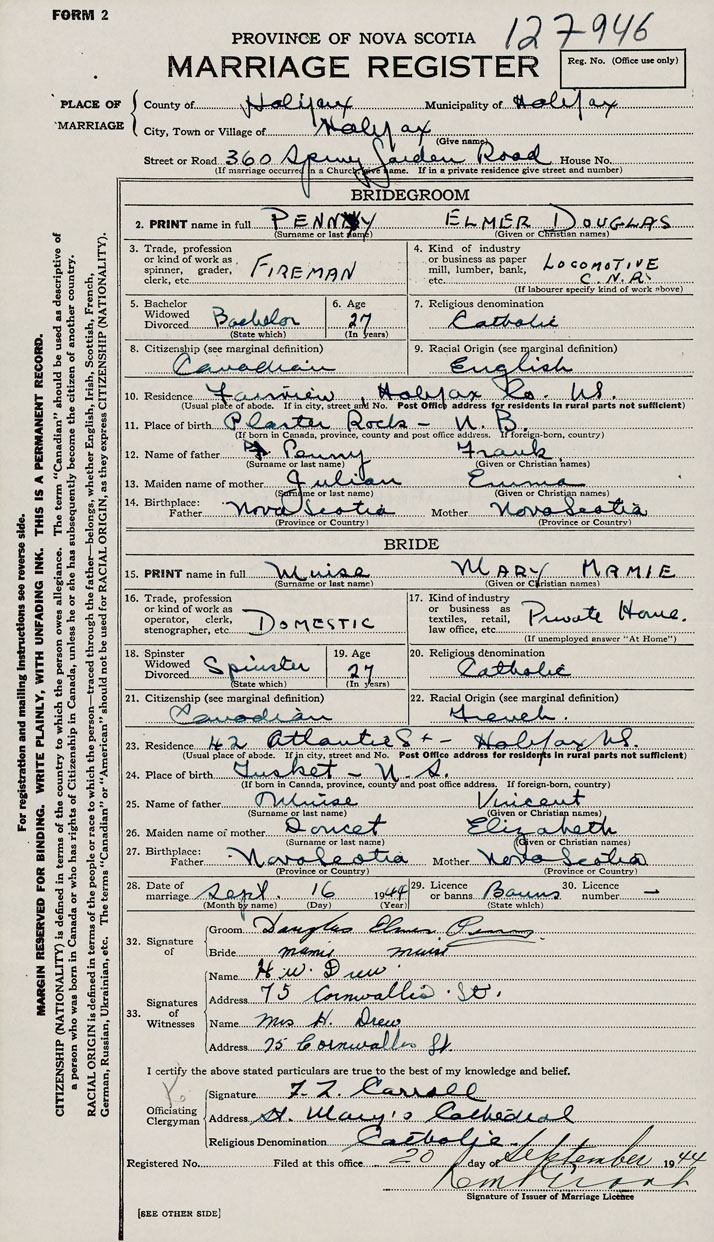 FORM 2
127946
PROVINCE OF NOVA SCOTIA
MARRIAGE REGISTER
Reg. No. (Office use only)
PLACE OF MARRIAGE
County of Halifax Municipality of Halifax
City, Town or Village of Halifax
(Give name)
Street or Road 360 Spring Garden Road House No.
(If marriage occurred in a Church, give name. If in a private residence give street and number)
BRIDEGROOM
2. PRINT name in full PENNY ELMER DOUGLAS
(Surname or last name) (Given or Christian names)
3. Trade, profession or kind of work as spinner, grader, clerk, etc. FIREMAN
4. Kind of industry or business as paper mill, lumber, bank, etc. LOCOMOTIVE C.N.R.
(If labourer specify kind of work above)
5. Bachelor Widowed Divorced Bachelor
(State which)
6. Age 27
(In years)
7. Religious denomination
Catholic
8. Citizenship (see marginal definition)
Canadian
9. Racial Origin (see marginal definition)
English
10. Residence Fairview, Halifax Co. NS.
(Usual place of abode. If in city, street and No. Post Office address for residents in rural parts not sufficient)
11. Place of birth Plaster Rock - N.B.
(If born in Canada, province, county and post office address. If foreign-born, country)
12. Name of father Penny Frank
(Surname or last name) (Given or Christian names)
13. Maiden name of mother Julian Emma
(Surname or last name) (Given or Christian names)
14. Birthplace: Father Nova Scotia Mother Nova Scotia
(Province or Country) (Province or Country)
BRIDE
15. PRINT name in full Muise MARY MAMIE
(Surname or last name) (Given or Christian names)
16. Trade, profession or kind of work as operator, clerk, stenographer, etc. DOMESTIC
17. Kind of industry or business as textiles, retail, law office, etc. Private Home.
(If unemployed answer "At Home")
18. Spinster Widowed Divorced Spinster
(State which)
19. Age 27
(In years)
20. Religious denomination
Catholic
21. Citizenship (see marginal definition)
Canadian
22. Racial Origin (see marginal definition)
French.
23. Residence 42 Atlantic St - Halifax NS.
(Usual place of abode. If in city, street and No. Post Office address for residents in rural parts not sufficient)
24. Place of birth Tusket - N.S.
(If born in Canada, province, county and post office address. If foreign-born, country)
25. Name of father Muise Vincent
(Surname or last name) (Given or Christian names)
26. Maiden name of mother Doucet Elizabeth
(Surname or last name) (Given or Christian names)
27. Birthplace: Father Nova Scotia Mother Nova Scotia
(Province or Country) (Province or Country)
28. Date of marriage Sept. 16 1944
(Month by name) (Day) (Year)
29. Licence or banns Banns
(State which)
30. Licence number —
32. Signature of
Groom Douglas Elmer Penny
Bride mamie muise
33. Signatures of Witnesses
Name H. W. Drew
Address 75 Cornwallis St.
Name Mrs H. Drew
Address 75 Cornwallis St.
I certify the above stated particulars are true to the best of my knowledge and belief.
Officiating Clergyman
Signature Carroll
Address St. Mary's Cathedral
Religious Denomination Catholic
Registered No. Filed at this office 20 day of September 1944
Signature of Issuer of Marriage Licence
[SEE OTHER SIDE]
For registration and mailing instructions see reverse side.
MARGIN RESERVED FOR BINDING. WRITE PLAINLY, WITH UNFADING INK. THIS IS A PERMANENT RECORD.
CITIZENSHIP (NATIONALITY) is defined in terms of the country to which the person owes allegiance. The term "Canadian" should be used as descriptive of
a person who was born in Canada or who has rights of Citizenship in Canada, unless he or she has subsequently become the citizen of another country.
RACIAL ORIGIN is defined in terms of the people or race to which the person—traced through the father—belongs, whether English, Irish, Scottish, French,
German, Russian, Ukrainian, etc. The terms "Canadian" or "American" should not be used for RACIAL ORIGIN, as they express CITIZENSHIP (NATIONALITY).